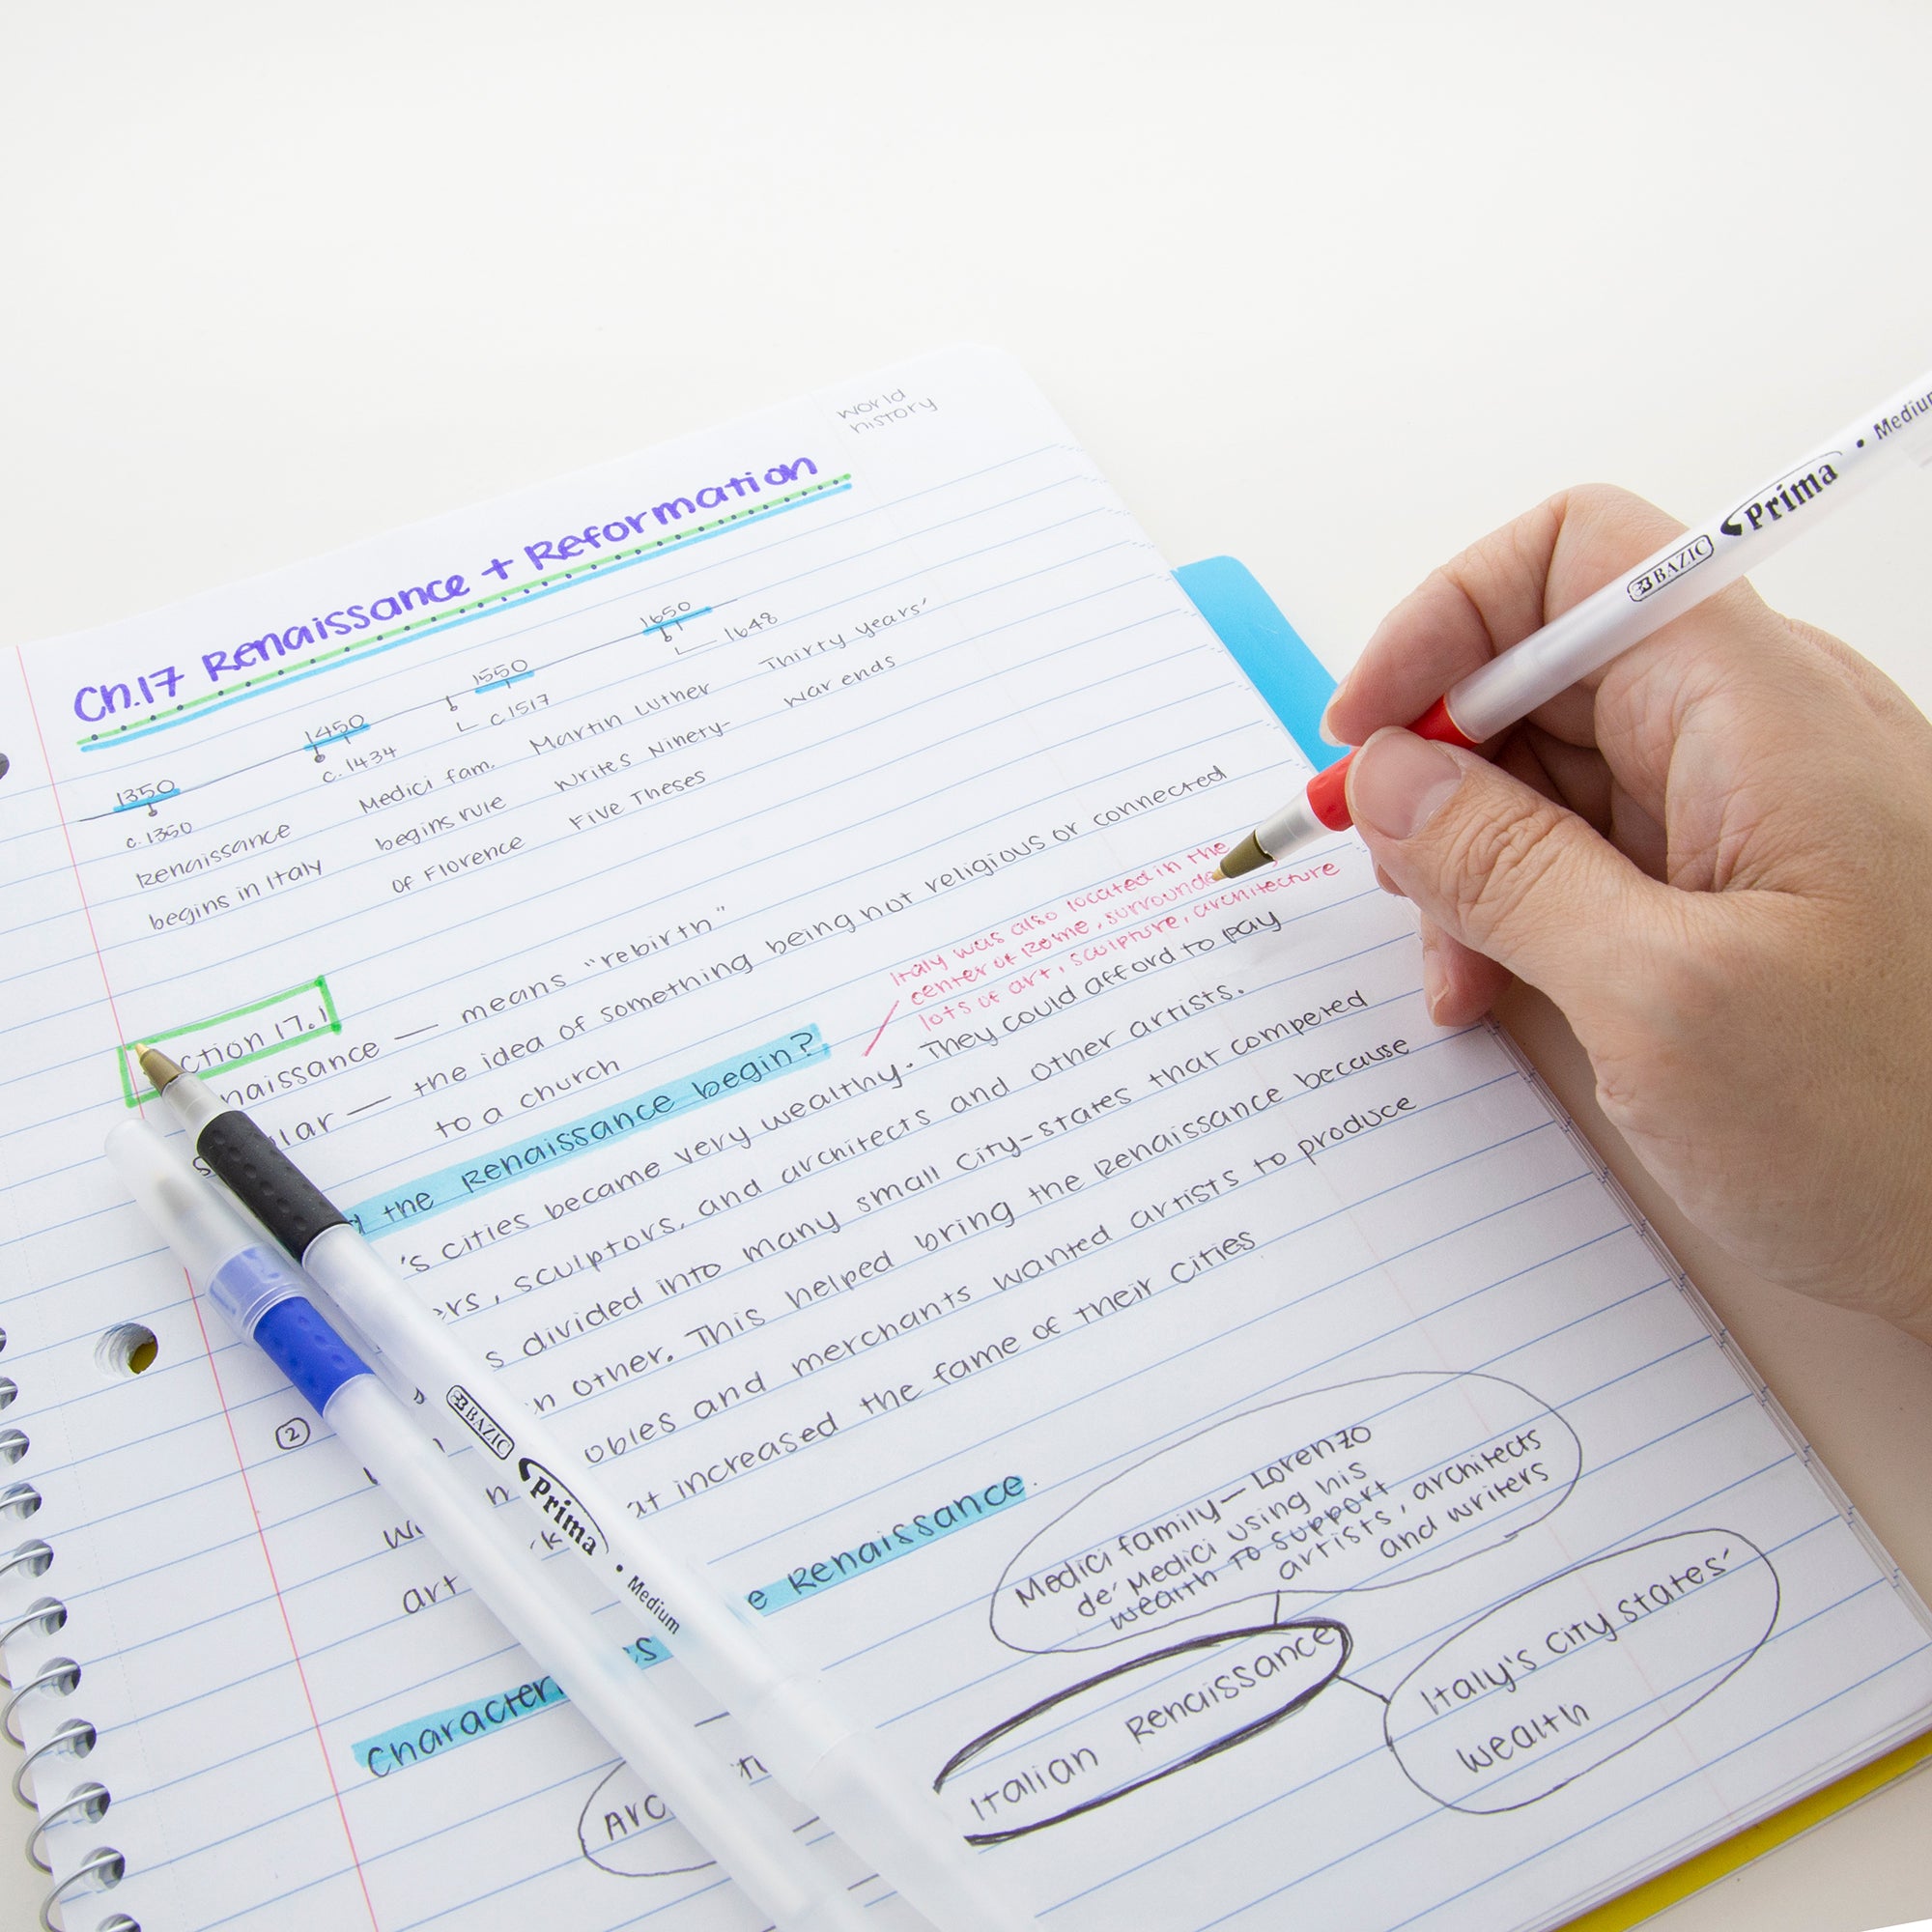 world
history
Ch.17 Renaissance + Reformation
1350
1450
1550
1650
c. 1350
Renaissance
begins in Italy
c. 1434
Medici fam.
begins rule
of Florence
c 1517
Martin Luther
writes Ninety-
Five Theses
1648
Thirty years'
war ends
ction 17.1
naissance — means "rebirth"
lar — the idea of something being not religious or connected
to a church
the Renaissance begin?
Italy was also located in the
center of Rome, surrounde
lots of art, sculpture, architecture
's cities became very wealthy. They could afford to pay
ers, sculptors, and architects and other artists.
s divided into many small city-states that competed
other. This helped bring the Renaissance because
obles and merchants wanted artists to produce
increased the fame of their cities
2
art
Renaissance.
Character
Medici family — Lorenzo
de' Medici using his
wealth to support
artists, architects
and writers
Italian Renaissance
Italy's city states'
wealth
Arc
BAZIC Prima • Medium
BAZIC Prima • Medium